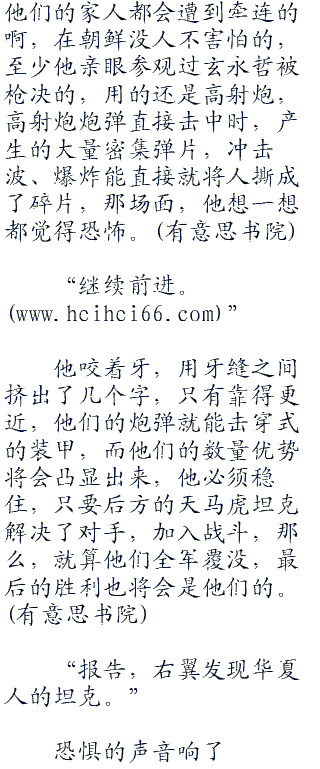 他们的家人都会遭到牵连的
啊，在朝鲜没人不害怕的，
至少他亲眼参观过玄永哲被
枪决的，用的还是高射炮，
高射炮炮弹直接击中时，产
生的大量密集弹片，冲击
波、爆炸能直接就将人撕成
了碎片，那场面，他想一想
都觉得恐怖。(有意思书院)
“继续前进。
(www.hcihci66.com)”
他咬着牙，用牙缝之间
挤出了几个字，只有靠得更
近，他们的炮弹就能击穿式
的装甲，而他们的数量优势
将会凸显出来，他必须稳
住，只要后方的天马虎坦克
解决了对手，加入战斗，那
么，就算他们全军覆没，最
后的胜利也将会是他们的。
(有意思书院)
“报告，右翼发现华夏
人的坦克。”
恐惧的声音响了